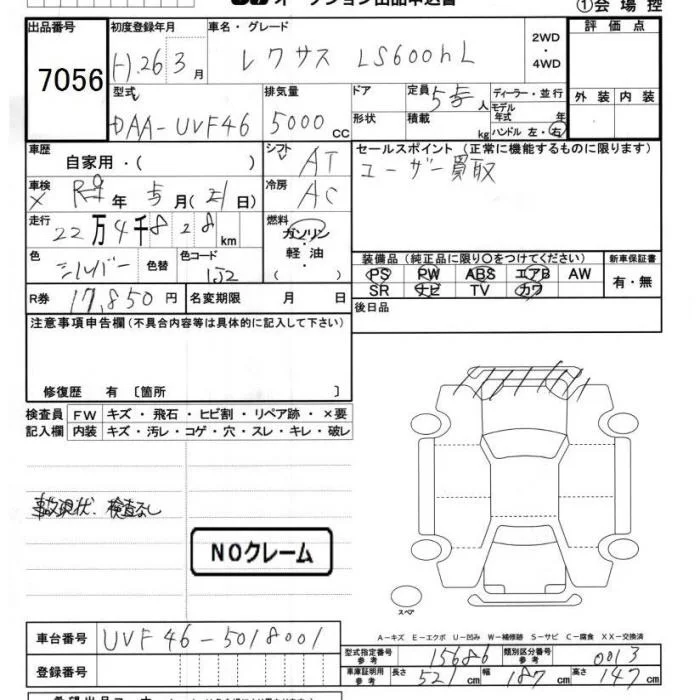 ①会 場 控
出品番号
7056
初度登録年月
H.26 3 月
車名・グレード
レクサス LS600hL
2WD
・
4WD
評 価 点
外 装 内 装
型式
DAA-UVF46
排気量
5000 CC
ドア
形状
定員 5 人
積載 kg
ディーラー・並行
モデル
年式 年
ハンドル 左・右
車歴
自家用・( )
シフト
AT
セールスポイント (正常に機能するものに限ります)
ユーザー買取
車検
年 月( 21 日)
冷房
AC
走行
22 万 4 千 828 km
燃料
ガソリン
・
軽 油
・
( )
色
シルバー
色替
色コード
1J2
装備品(純正品に限り○をつけてください)
PS PW ABS エアB AW
SR ナビ TV カワ
新車保証書
有・無
R券 17,850 円
名変期限 月 日
後日品
注意事項申告欄(不具合内容等は具体的に記入して下さい)
修復歴 有 〔箇所 〕
検査員
記入欄
FW キズ・飛石・ヒビ割・リペア跡・×要
内装 キズ・汚レ・コゲ・穴・スレ・キレ・破レ
事故現状、検査なし
NOクレーム
スペア
A-キズ E-エクボ U-凹み W-補修跡 S-サビ C-腐食 XX-交換済
車台番号 UVF46-5018001
登録番号
型式指定番号
参考
15686
類別区分番号
参考
0013
車庫証明用
参考
長さ 521 cm 幅 187 cm 高さ 147 cm